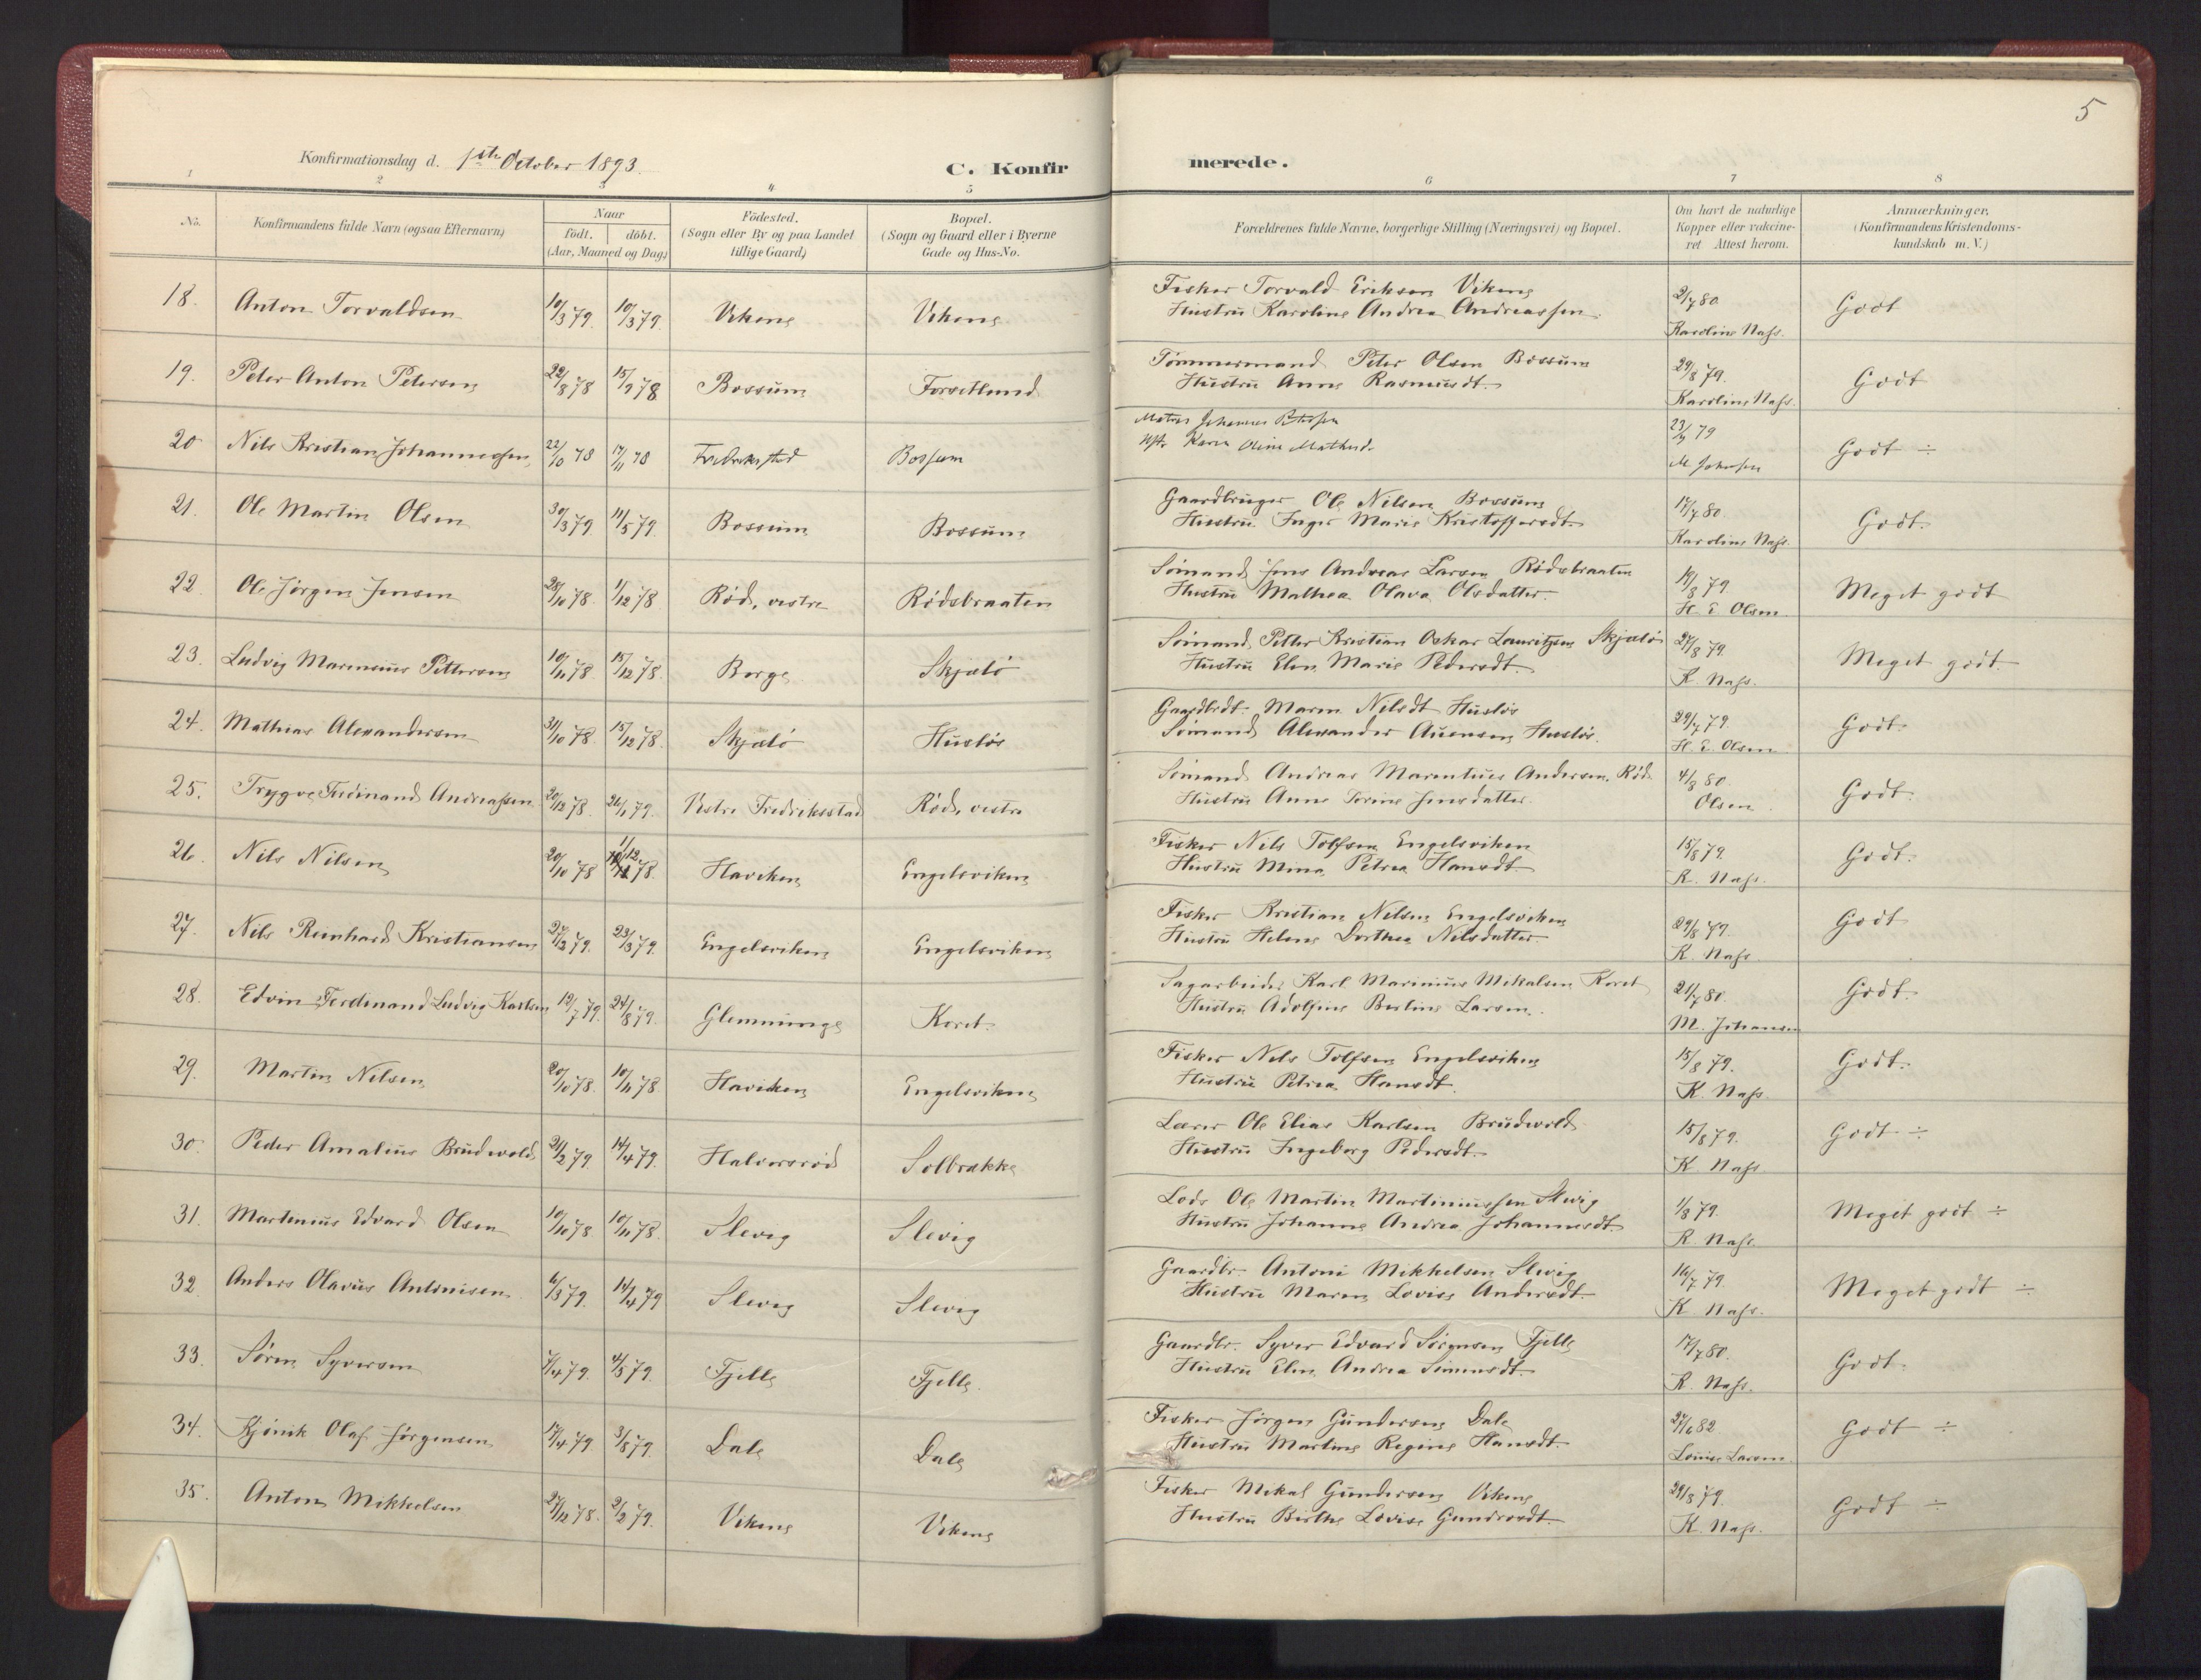 5
Konfirmationsdag d. 1ste October 1893.
C. Konfirmerede.
1 2 3 4 5 6 7 8
No.
Konfirmandens fulde Navn (ogsaa Efternavn)
Naar
födt. döbt.
(Aar, Maaned og Dag)
Födested.
(Sogn eller By og paa Landet
tillige Gaard)
Bopæl.
(Sogn og Gaard eller i Byerne
Gade og Hus-No.
Forældrenes fulde Navne, borgerlige Stilling (Næringsvei) og Bopæl.
Om havt de naturlige
Kopper eller vakcine-
ret Attest herom.
Anmærkninger.
(Konfirmandens Kristendoms-
kundskab m. V.)
18. Anton Torvaldsen 10/3 79. 10/3 79. Vikene Vikene Fisker Torvald Eriksen Vikene 2/7 80 Godt
Hustru Karoline Andrea Andreassen. Karoline Næss.
19. Peter Anton Petersen 22/8 78 15/9 78 Bossum Forsetlund Tømmermand Peter Olsen Bossum 29/8 79. Godt
Hustru Anne Rasmusdt. Karoline Næss.
20 Nils Kristian Johannessen 22/10 78 17/11 78 Fredrikstad Bossum Johannes 23/9 79 Godt ÷
Karen Oline Mathisd. M Johnsen
21. Ole Martin Olsen 30/3 79. 11/5 79. Bossum Bossum Gaardbruger Ole Nilsen Bossum 17/7 80. Godt.
Hustru Inger Marie Kristoffersdt. Karoline Næss.
22. Ole Jørgen Jensen 28/10 78. 1/12 78. Rød, vestre Rødsbraaten Sømand Jens Andreas Larsen Rødsbraaten 19/8 79. Meget godt
Hustru Mathea Olava Olsdatter. H. E. Olsen
23. Ludvig Marinius Pettersen 10/11 78. 15/12 78. Borge Skjælø Sømand Petter Kristian Oskar Lauritzen Skjælø 27/8 79. Meget godt.
Hustru Elen Marie Pedersdt. K. Næss.
24. Mathias Alexandersen 31/10 78. 15/12 78. Skjælø Husløs Maren Nilsdt Husløs 29/7 79. Godt.
Sømand Alexander Husløs. H. E. Olsen
25. Trygve Ferdinand Andreassen 20/12 78. 26/1 79. Vestre Fredriksstad Rød, vestre Sømand Andreas Andersen, Rød 4/8 80. Godt.
Hustru Anne Torine Jensdatter. Olsen.
26. Nils Nilsen 20/10 78 1/12 78. Haviken Engelsviken Fisker Nils Tolfsen Engelsviken 15/8 79. Godt.
Hustru Mina Petrea Hansdt. K. Næss.
27. Nils Reinhard Kristiansen 27/2 79. 23/3 79. Engelsviken Engelsviken Fisker Kristian Nilsen Engelsviken 29/8 79. Godt
Hustru Helene Dorthea Nilsdatter. K. Næss
28. Edvin Ferdinand Ludvig Karlsen 12/7 79. 24/8 79. Glemminge Koret. Sagarbeider Karl Marinius Mikalsen Koret 21/7 80. Godt.
Hustru Adolfine Bertine Larsen. M. Johansen
29. Martin Nilsen 20/10 78. 10/11 78. Haviken Engelsviken Fisker Nils Tolfsen Engelsviken 15/8 79. Godt.
Hustru Petrea Hansdt. K. Næss.
30. Peder Amalius Brudevold 21/2 79. 14/4 79. Halvorsrød Solbrække Lærer Ole Elias Karlsen Brudevold 15/8 79. Godt ÷
Hustru Ingeborg Pedersdt. K. Næss
31. Martinius Edvard Olsen 10/10 78. 10/11 78. Slevig Slevig Lods Ole Martin Martiniussen Slevig 1/8 79. Meget godt ÷
Hustru Johanne Andrea Johannesdt. K. Næss.
32. Anders Olavus Antonisen. 6/3 79. 14/4 79 Slevig Slevig Gaardbr. Antoni Mikkelsen Slevig 16/7 79. Meget godt ÷
Hustru Maren Lovise Andersdt. K Næss.
33. Søren Syversen 7/4 79. 4/5 79. Fjelle Fjelle. Gaardbr. Syver Edvard Sørensen Fjelle 17/7 80. Godt.
Hustru Elen Andrea Simensdt. K. Næss.
34. Kjønik Olaf Jørgensen 17/4 79. 3/8 79. Dale Dale Fisker Jørgen Gundersen Dale 27/6 82 Godt ÷
Hustru Martine Regine Hansdt. Louise Larsen.
35. Anton Mikkelsen 27/12 78. 2/2 79. Vikene Vikene Fisker Mikal Gundersen Vikene 29/8 79. Godt ÷
Hustru Birthe Lovise Gundersdt. K. Næss.